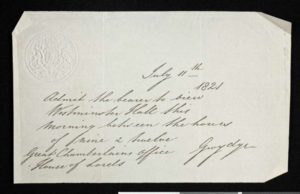 July 11th
1821
Admit the bearer to view
Westminster Hall this
Morning between the hours
of nine & twelve
Great Chamberlains Office
Gwydyr
House of Lords